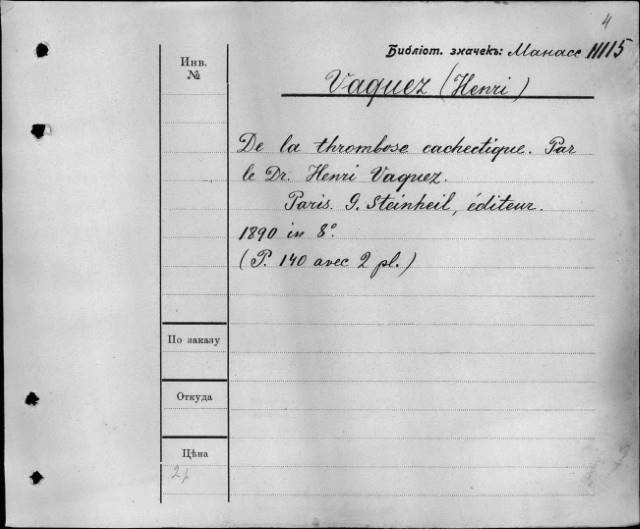 4
Библіот. значекъ: Манасс 11115
Инв.
№
Vaquez (Henri)
De la thrombose cachectique. Par
le Dr. Henri Vaquez.
Paris. G. Steinheil, éditeur.
1890 in 8°
(P. 140 avec 2 pl.)
По заказу
Откуда
Цѣна